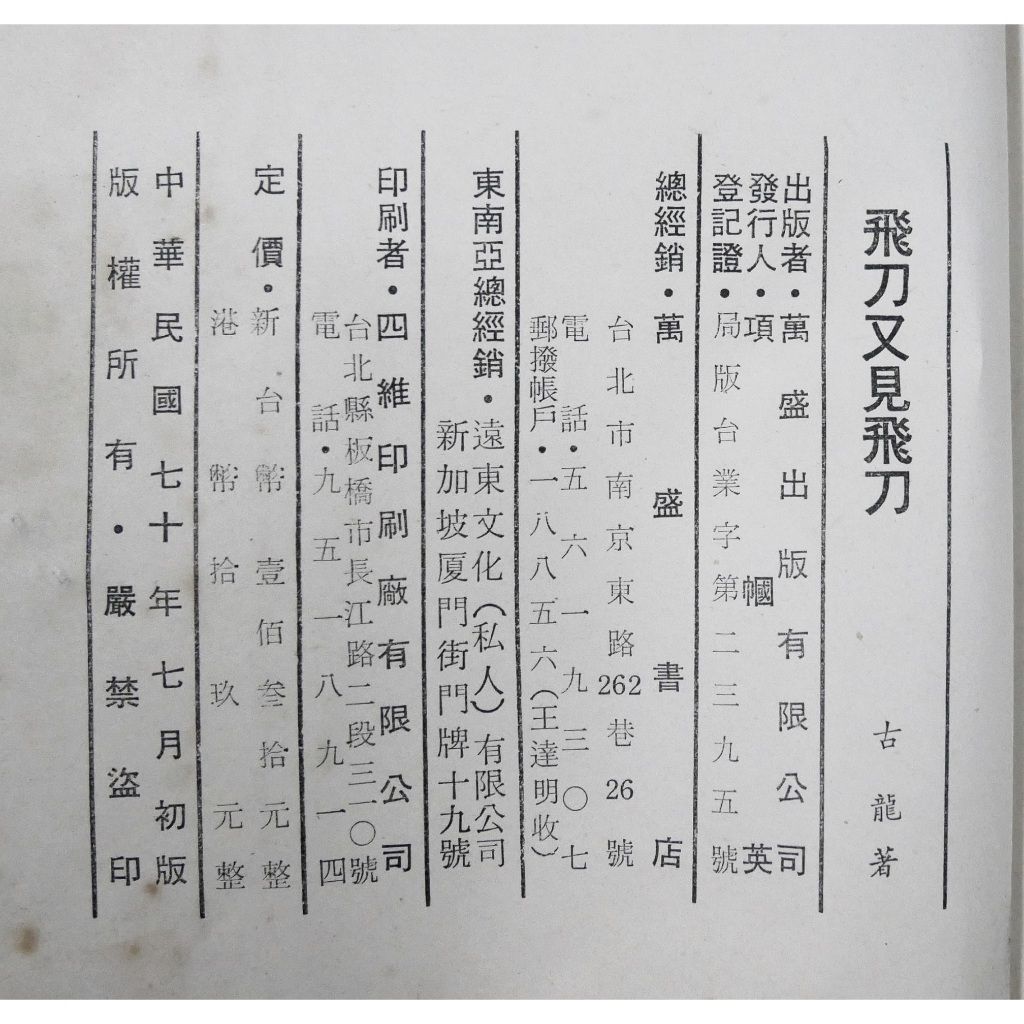 飛刀又見飛刀
古龍著
出版者·萬盛出版有限公司
發行人·項幗英
登記證·局版台業字第二三九五號
總經銷·萬盛書店
台北市南京東路262巷26號
電話·五六一九三〇七
郵撥帳戶·一八八五六(王達明收)
東南亞總經銷·遠東文化(私人)有限公司
新加坡厦門街門牌十九號
印刷者·四維印刷廠有限公司
台北縣板橋市長江路二段三一〇號
電話·九五一八九一四
定價·新台幣壹佰叁拾元整
港幣拾玖元整
中華民國七十年七月初版
版權所有·嚴禁盜印